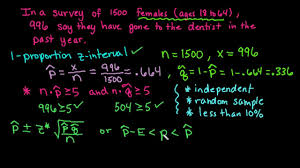 In a survey of 1500 females (ages 18 to 64),
996 say they have gone to the dentist in the
past year.
n = 1500, x = 996
1-proportion z-interval ✓
p̂ = x/n = 996/1500 = .664, q̂ = 1-p̂ = 1-.664 = .336
* n·p̂ ≥ 5 and n·q̂ ≥ 5
996 ≥ 5 504 ≥ 5 ✓
* independent
* random sample
* less than 10%
p̂ ± z* √(p̂q̂/n) or p̂-E < p < p̂